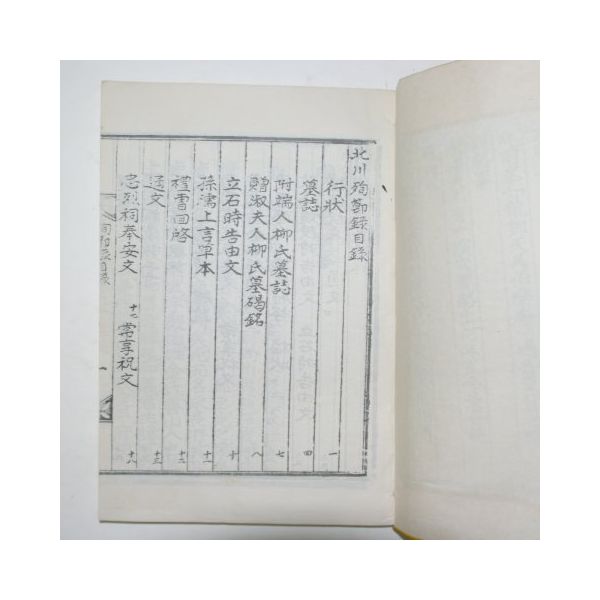 北川殉節錄目錄
行狀 一
墓誌 四
附端人柳氏墓誌 七
贈淑夫人柳氏墓碣銘 八
立石時告由文 十
孫濤上言單本 十一
禮曹回啓 十二
通文 十三
忠烈祠奉安文 十七 常享祝文 十八